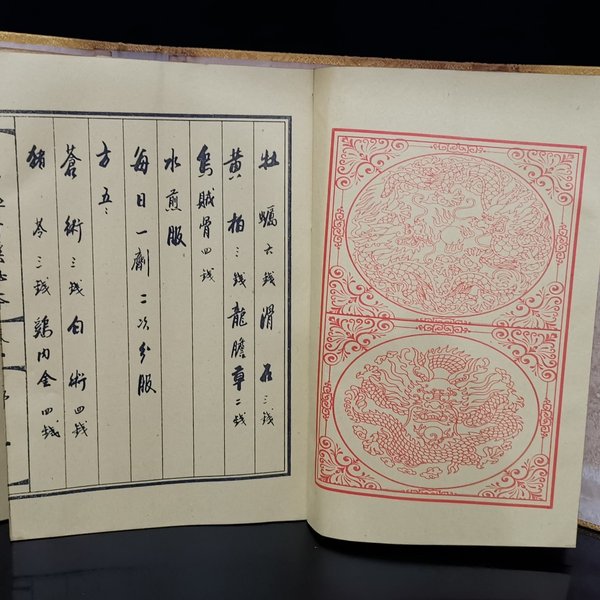 牡蠣六錢滑石三錢
黄柏三錢龍膽草二錢
烏賊骨四錢
水煎服
每日一劑二次分服
方五:
蒼術三錢白術四錢
猪苓三錢鷄内金四錢